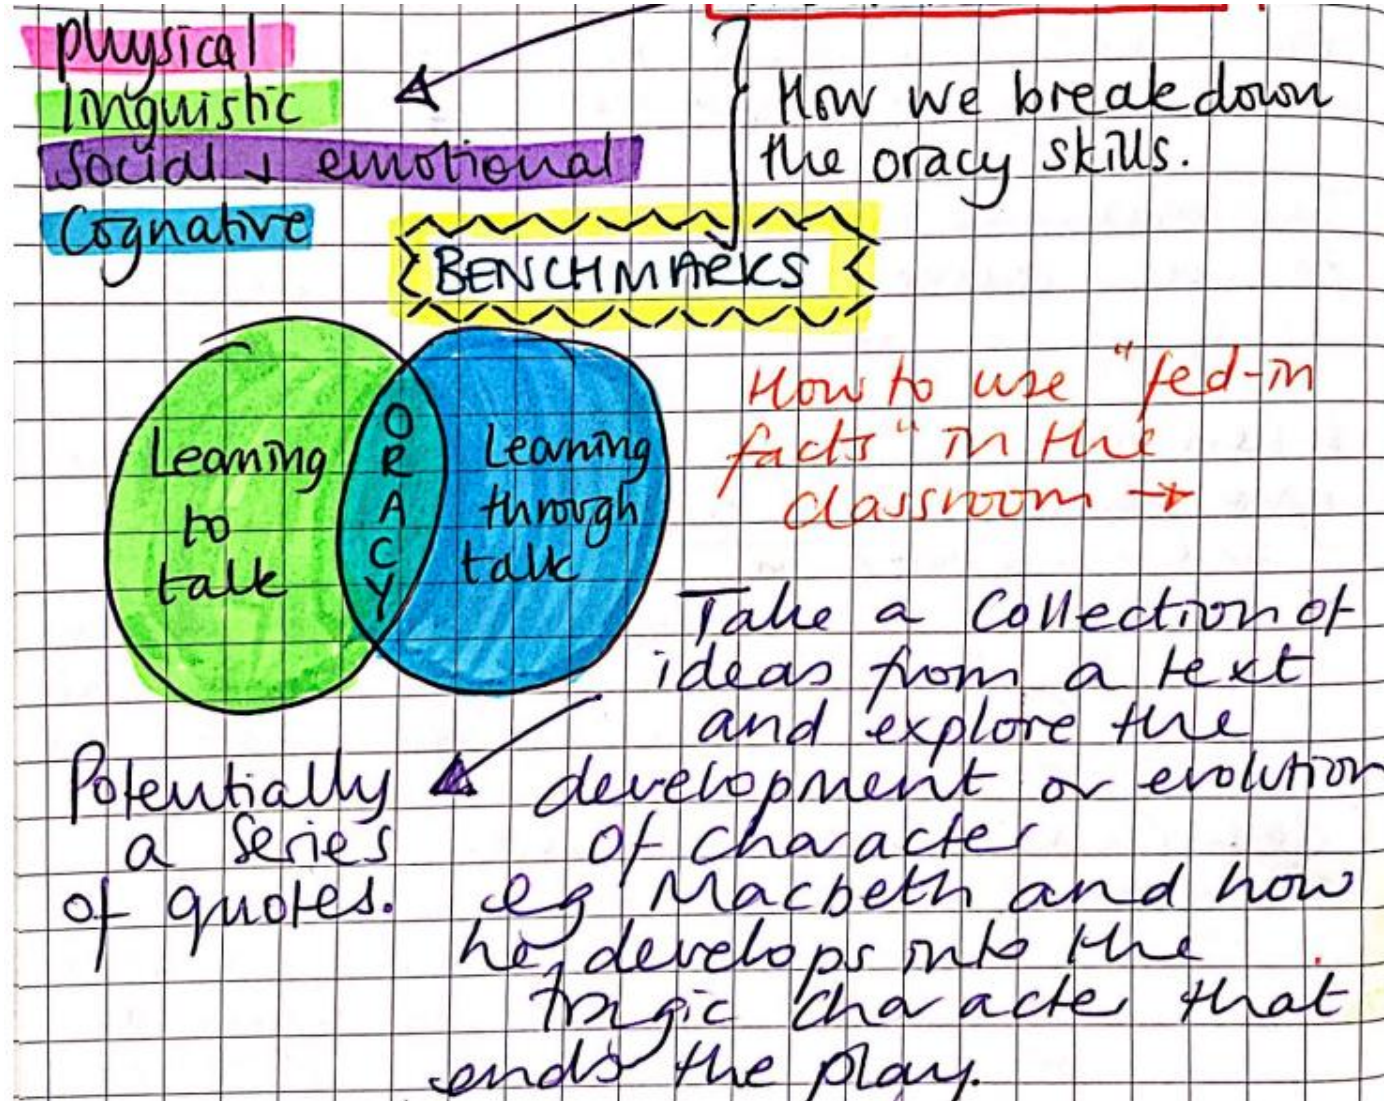 physical
linguistic
social + emotional
Cognative
How we break down
the oracy skills.
BENCHMARKS
ORACY
Learning
to
talk
Learning
through
talk
How to use "fed-in
facts" in the
classroom →
Take a collection of
ideas from a text
and explore the
development or evolution
of character
eg Macbeth and how
he develops into the
tragic character that
ends the play.
Potentially
a series
of quotes.